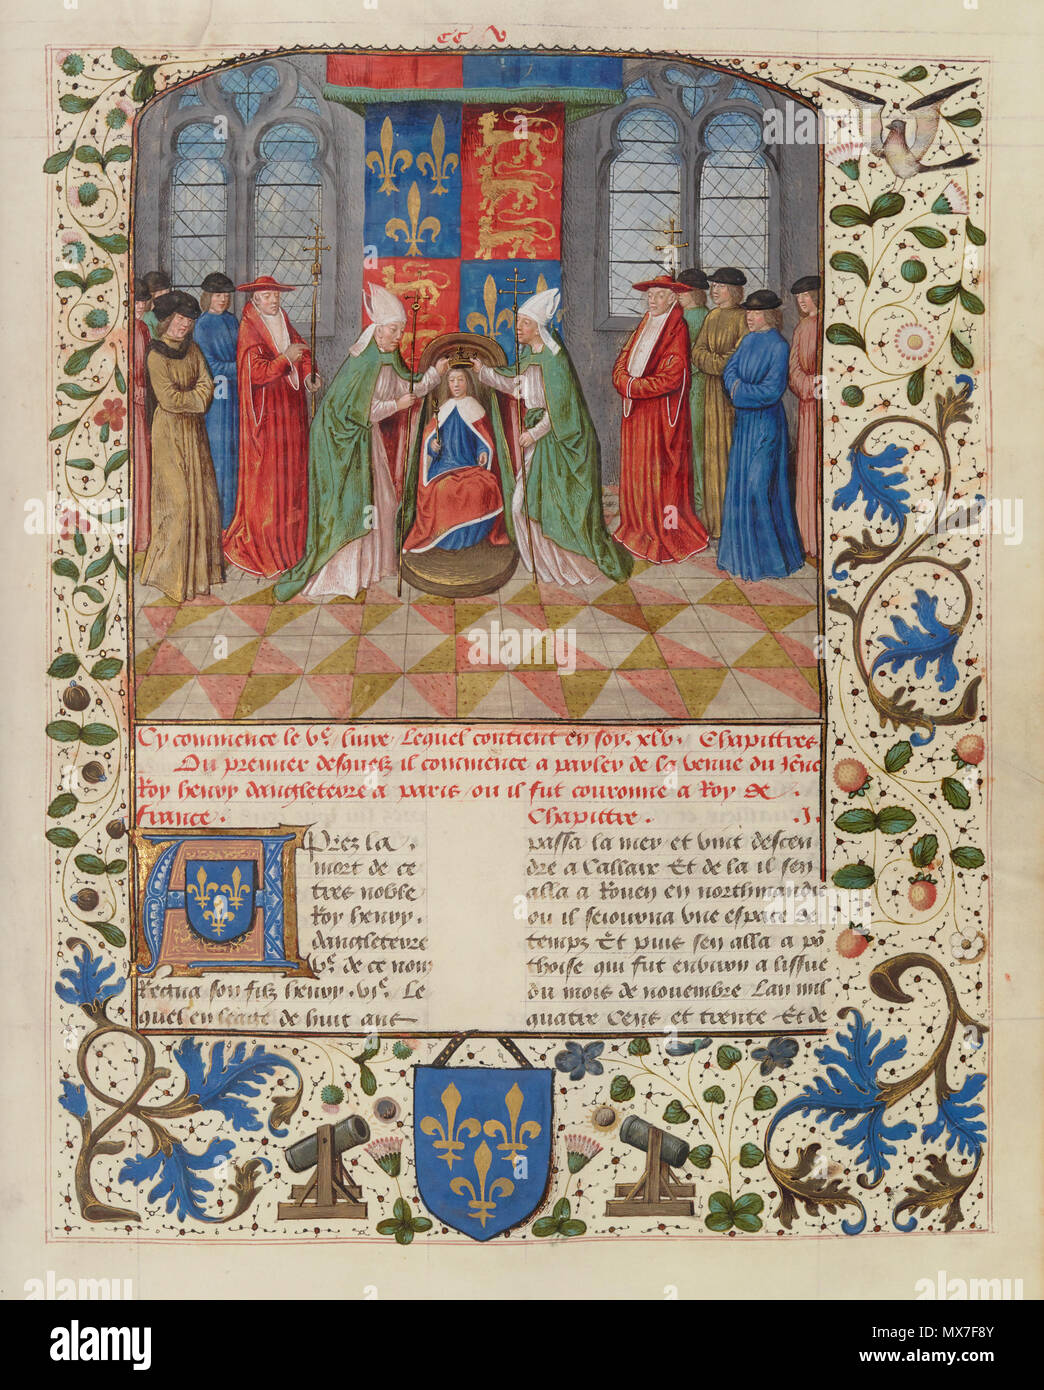 cc v
Cy commence le Vᵉ livre lequel contient en soy xlv. Chapittres
Du premier desquelz il commence a parler de la venue du Jēne
Roy henry dangleterre a paris ou il fut couronne a Roy de
france.
Chapittre .I.
Aprez la
mort de ce
tres noble
Roy henry.
dangleterre
Vᵉ. de ce nom
Regna son filz henry .vjᵉ. Le
quel en leage de huit ans
passa la mer et vint descen
dre a Callaix Et de la il sen
alla a Rouen en northmandie
ou il seiourna vne espace de
temps Et puis sen alla a pō
thoise qui fut environ a lissue
du mois de novembre Lan mil
quatre Cens et trente Et de
alamy
alamy
a
a
a
a
alamy
Image ID: MX7F8Y
www.alamy.com